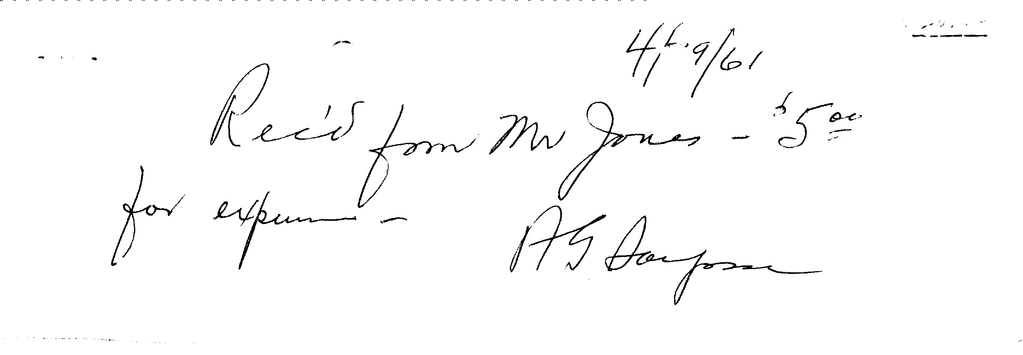 4/19/61
Rec'd from Mr Jones - $5.00
for expense -
A G